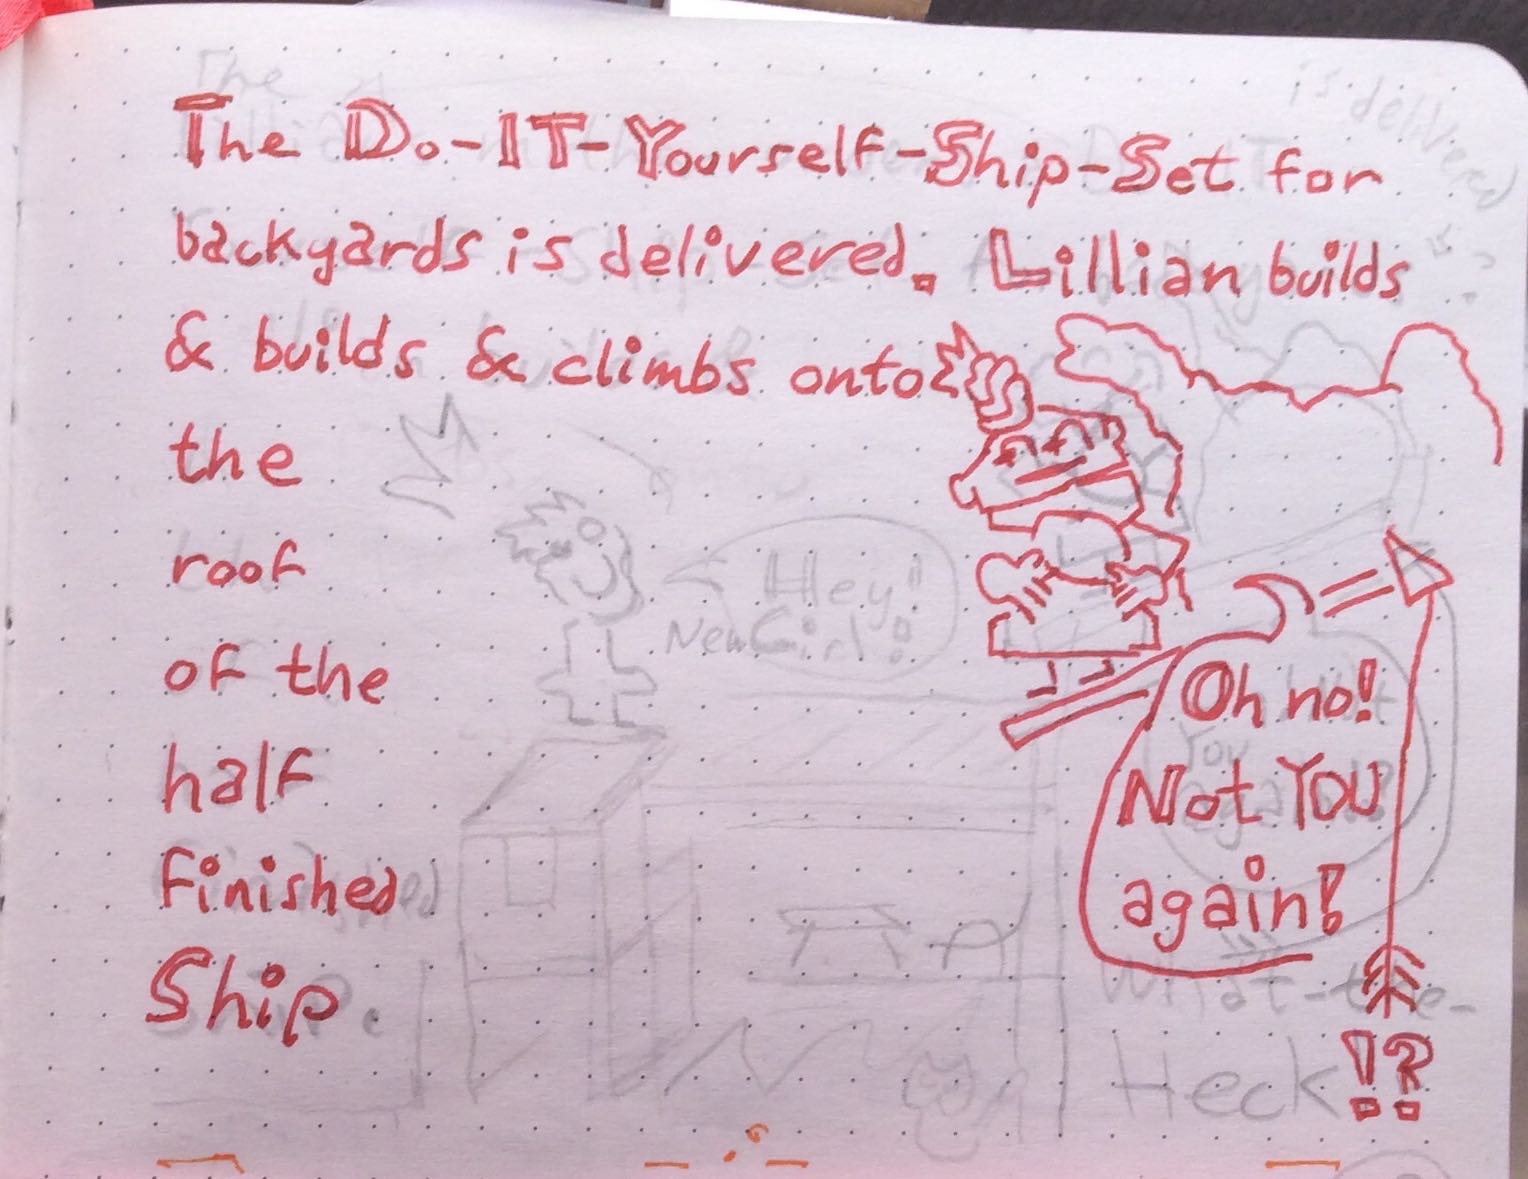 The
is delivered
The Do-IT-Yourself-Ship-Set for
backyards is delivered. Lillian builds
& builds & climbs onto
the
roof
of the
half
finished
Ship.
Hey!
New Girl!
Oh no!
Not YOU
again!
What-the-
Heck!?